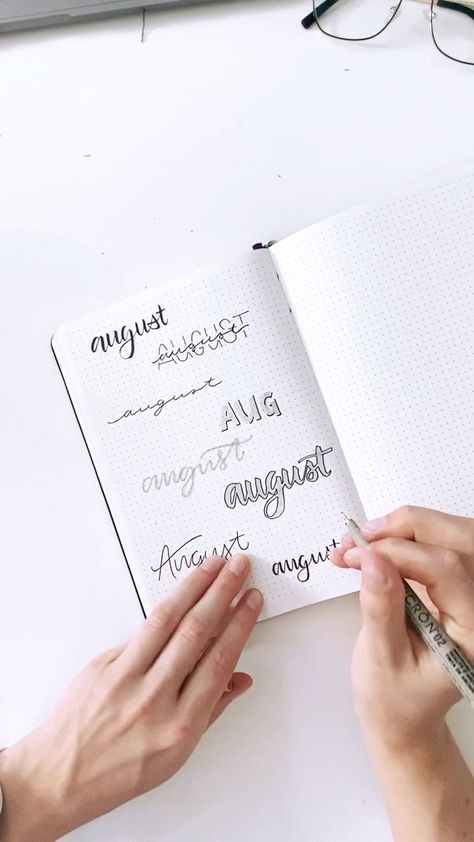 august
AUGUST
august
august
AUG
august
august
August
august
CRON® 02